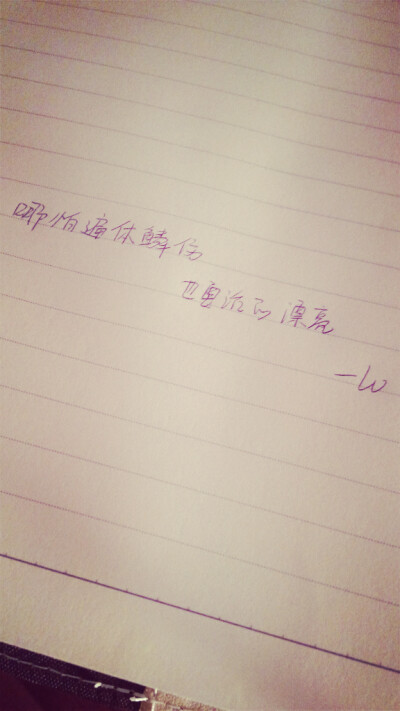 哪怕遍体鳞伤
也要活的漂亮
—lw